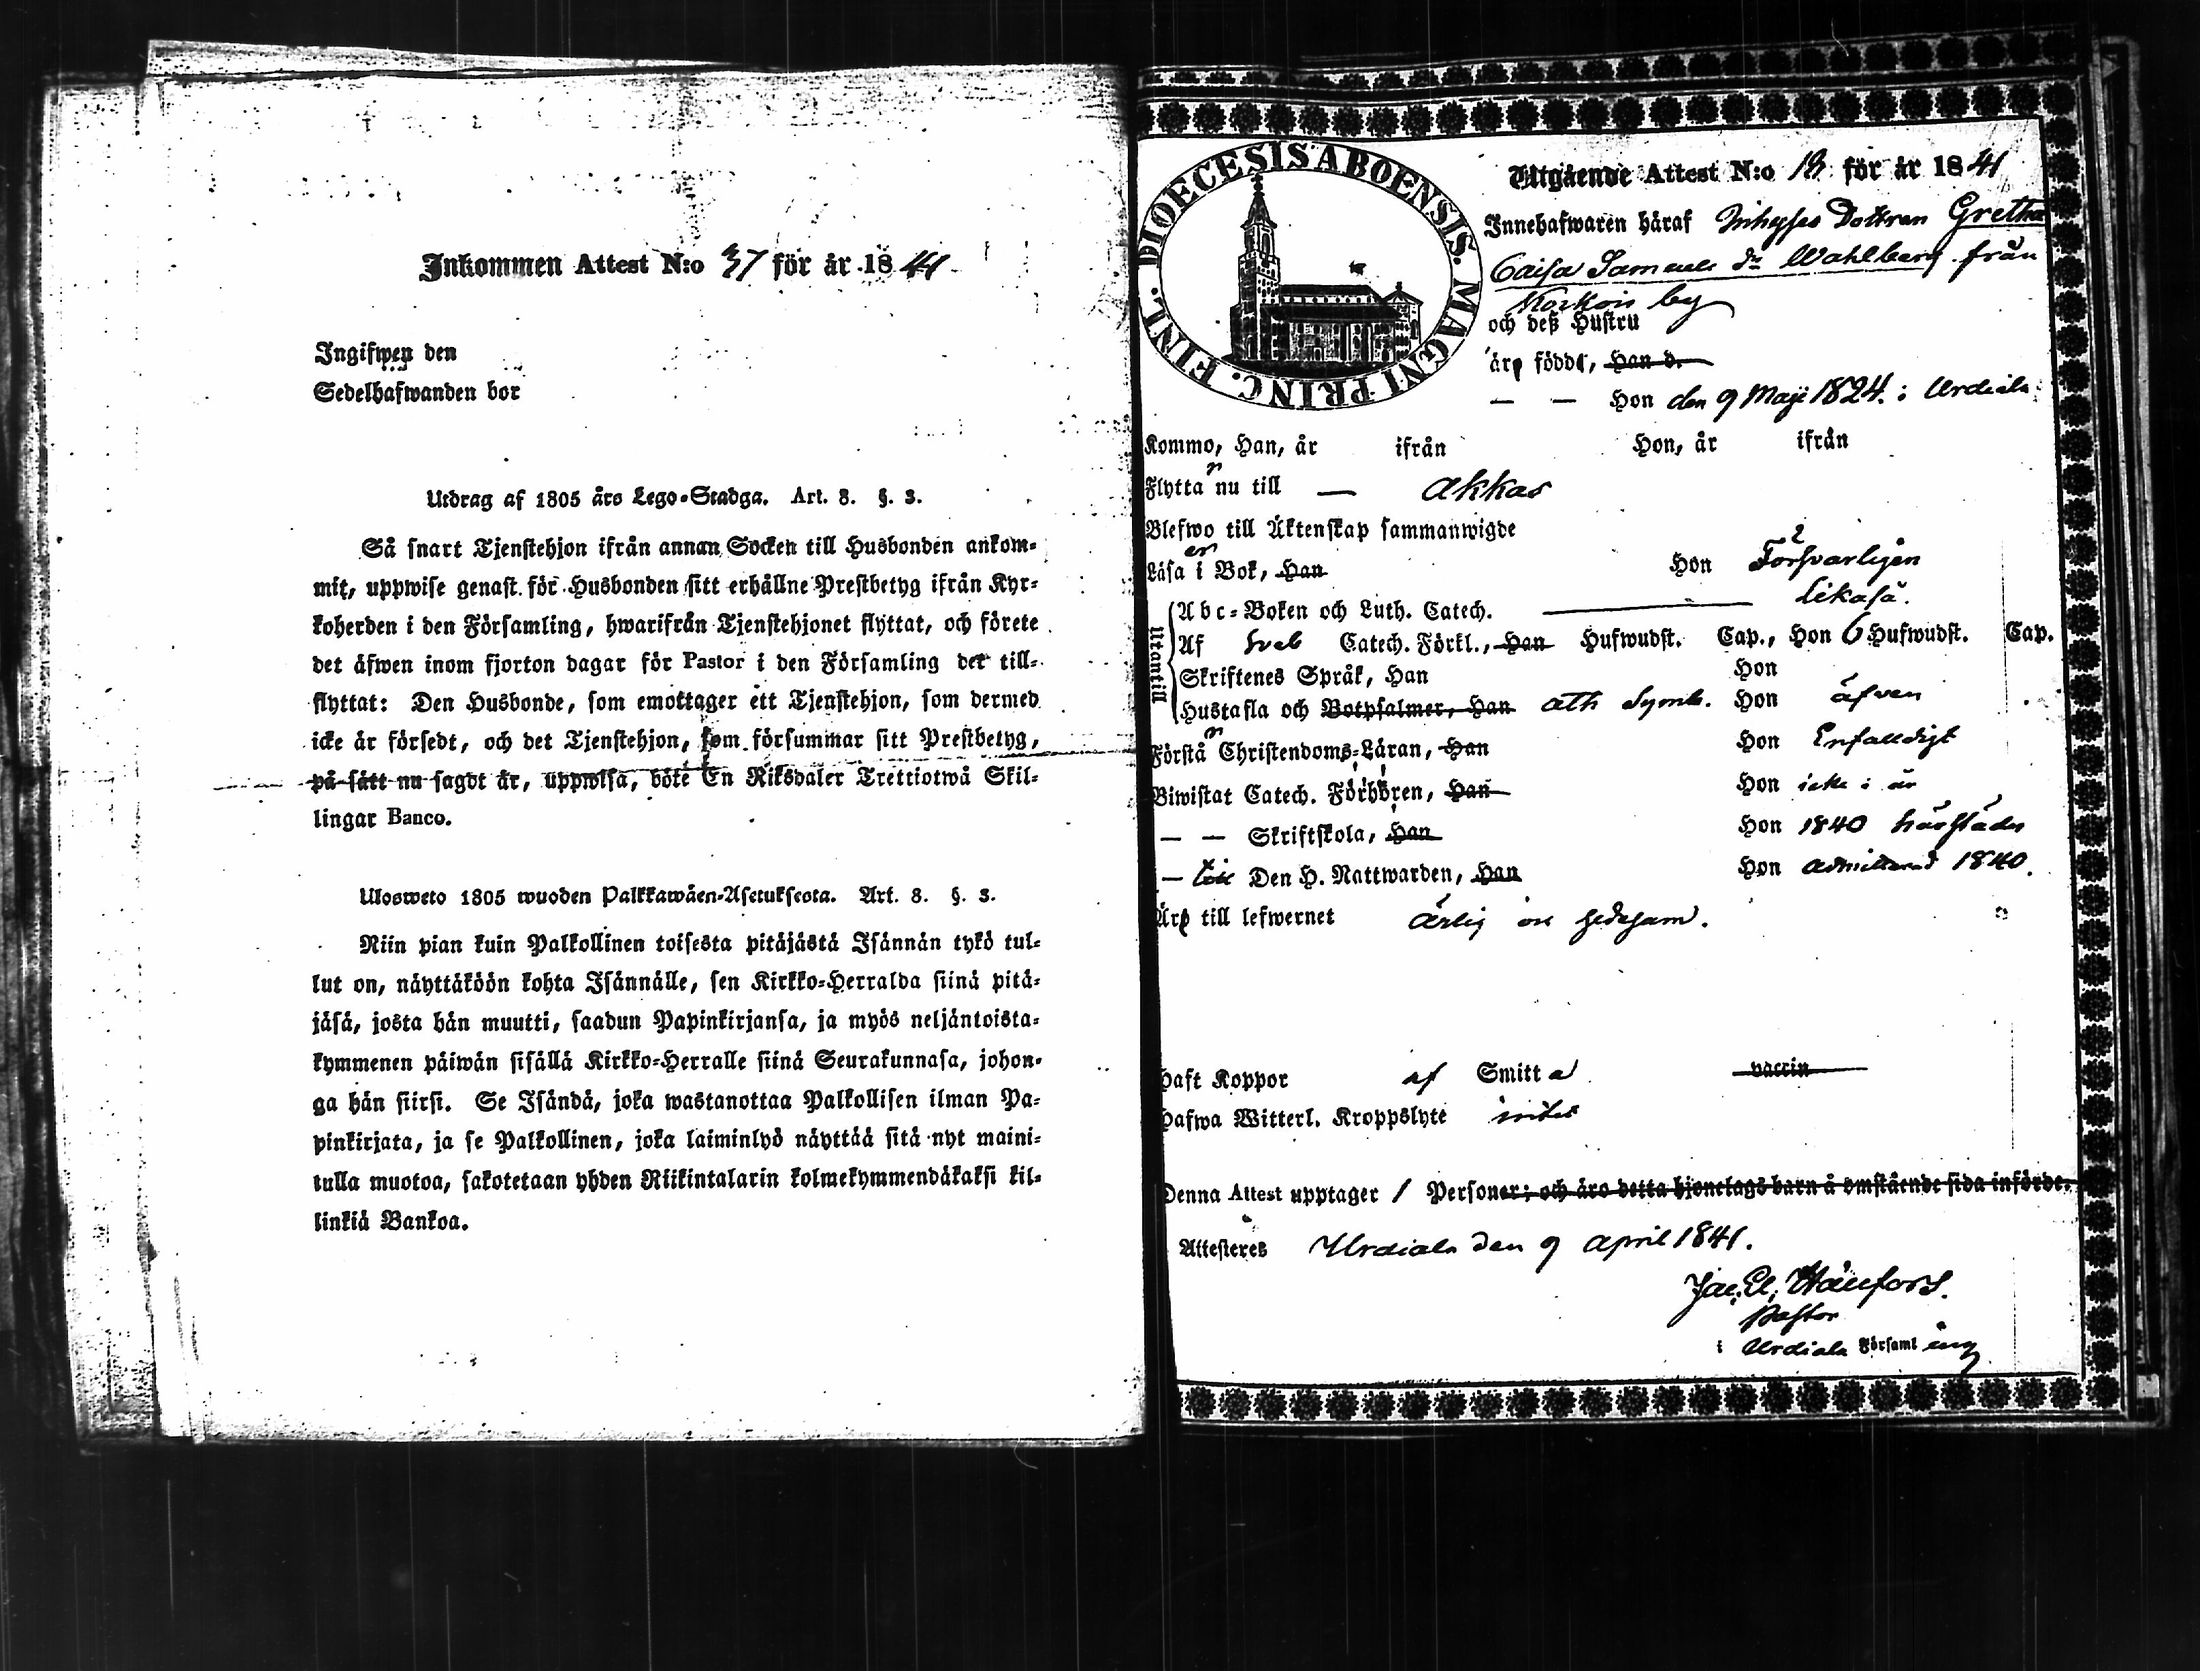 Inkommen Attest N:o 37 för år 1841
Ingifwen den
Sedelhafwanden bor
Utdrag af 1805 års Lego-Stadga. Art. 8. §. 3.
Så snart Tjenstehjon ifrån annan Socken till Husbonden ankom-
mit, uppwise genast för Husbonden sitt erhållne Prestbetyg ifrån Kyr-
koherden i den Församling, hwarifrån Tjenstehjonet flyttat, och förete
det äfwen inom fjorton dagar för Pastor i den Församling det till-
flyttat: Den Husbonde, som emottager ett Tjenstehjon, som dermed
icke är försedt, och det Tjenstehjon, som försummar sitt Prestbetyg,
på sätt nu sagdt är, uppwisa, böte En Riksdaler Trettiotwå Skil-
lingar Banco.
Ulosweto 1805 wuoden Palkkawäen-Asetuksesta. Art. 8. §. 3.
Niin pian kuin Palkollinen toisesta pitäjästä Isännän tykö tul-
lut on, näyttäköön kohta Isännälle, sen Kirkko-Herralda siinä pitä-
jäsä, josta hän muutti, saadun Papinkirjansa, ja myös neljäntoista-
kymmenen päiwän sisällä Kirkko-Herralle siinä Seurakunnasa, johon-
ga hän siirsi. Se Isändä, joka wastanottaa Palkollisen ilman Pa-
pinkirjata, ja se Palkollinen, joka laiminlyö näyttää sitä nyt maini-
tulla muotoa, sakotetaan yhden Riikintalarin kolmekymmendäkaksi kil-
linkiä Bankoa.
DIOECESIS ABOENSIS. MAGNI PRINC. FINL.
Utgående Attest N:o 19 för år 1841
Innehafwaren häraf Inhyses Dottren Gretha
Caisa Samuels dr Wahlberg från
by
och deß Hustru
äro födde, Han d.
— — Hon den 9 Maji 1824. i Urdiala
Kommo, Han, år ifrån Hon, år ifrån
Flyttar nu till — Akkas
Blefwo till Äktenskap sammanwigde
Läser i Bok, Han Hon Försvarligen
Utantill
Abc-Boken och Luth. Catech. likaså.
Af Sveb Catech. Förkl., Han Hufwudst. Cap., Hon 6 Hufwudst. Cap.
Skriftenes Språk, Han Hon
Hustafla och Botpsalmer, Han Ath Symb. Hon äfven
Förstår Christendoms-Läran, Han Hon Enfaldigt
Biwistat Catech. Förhören, Han Hon icke i år
— — Skriftskola, Han Hon 1840 härstädes
— Den H. Nattwarden, Han Hon admitterad 1840.
Äro till lefwernet ärlig och gudsam.
Haft Koppor af Smitta vaccin
Hafwa Witterl. Kroppslyte intet
Denna Attest upptager 1 Personer; och äro detta hjonelags barn å omstående sida införde.
Attesteres Urdiala den 9 April 1841.
Pastor
i Urdiala Församling